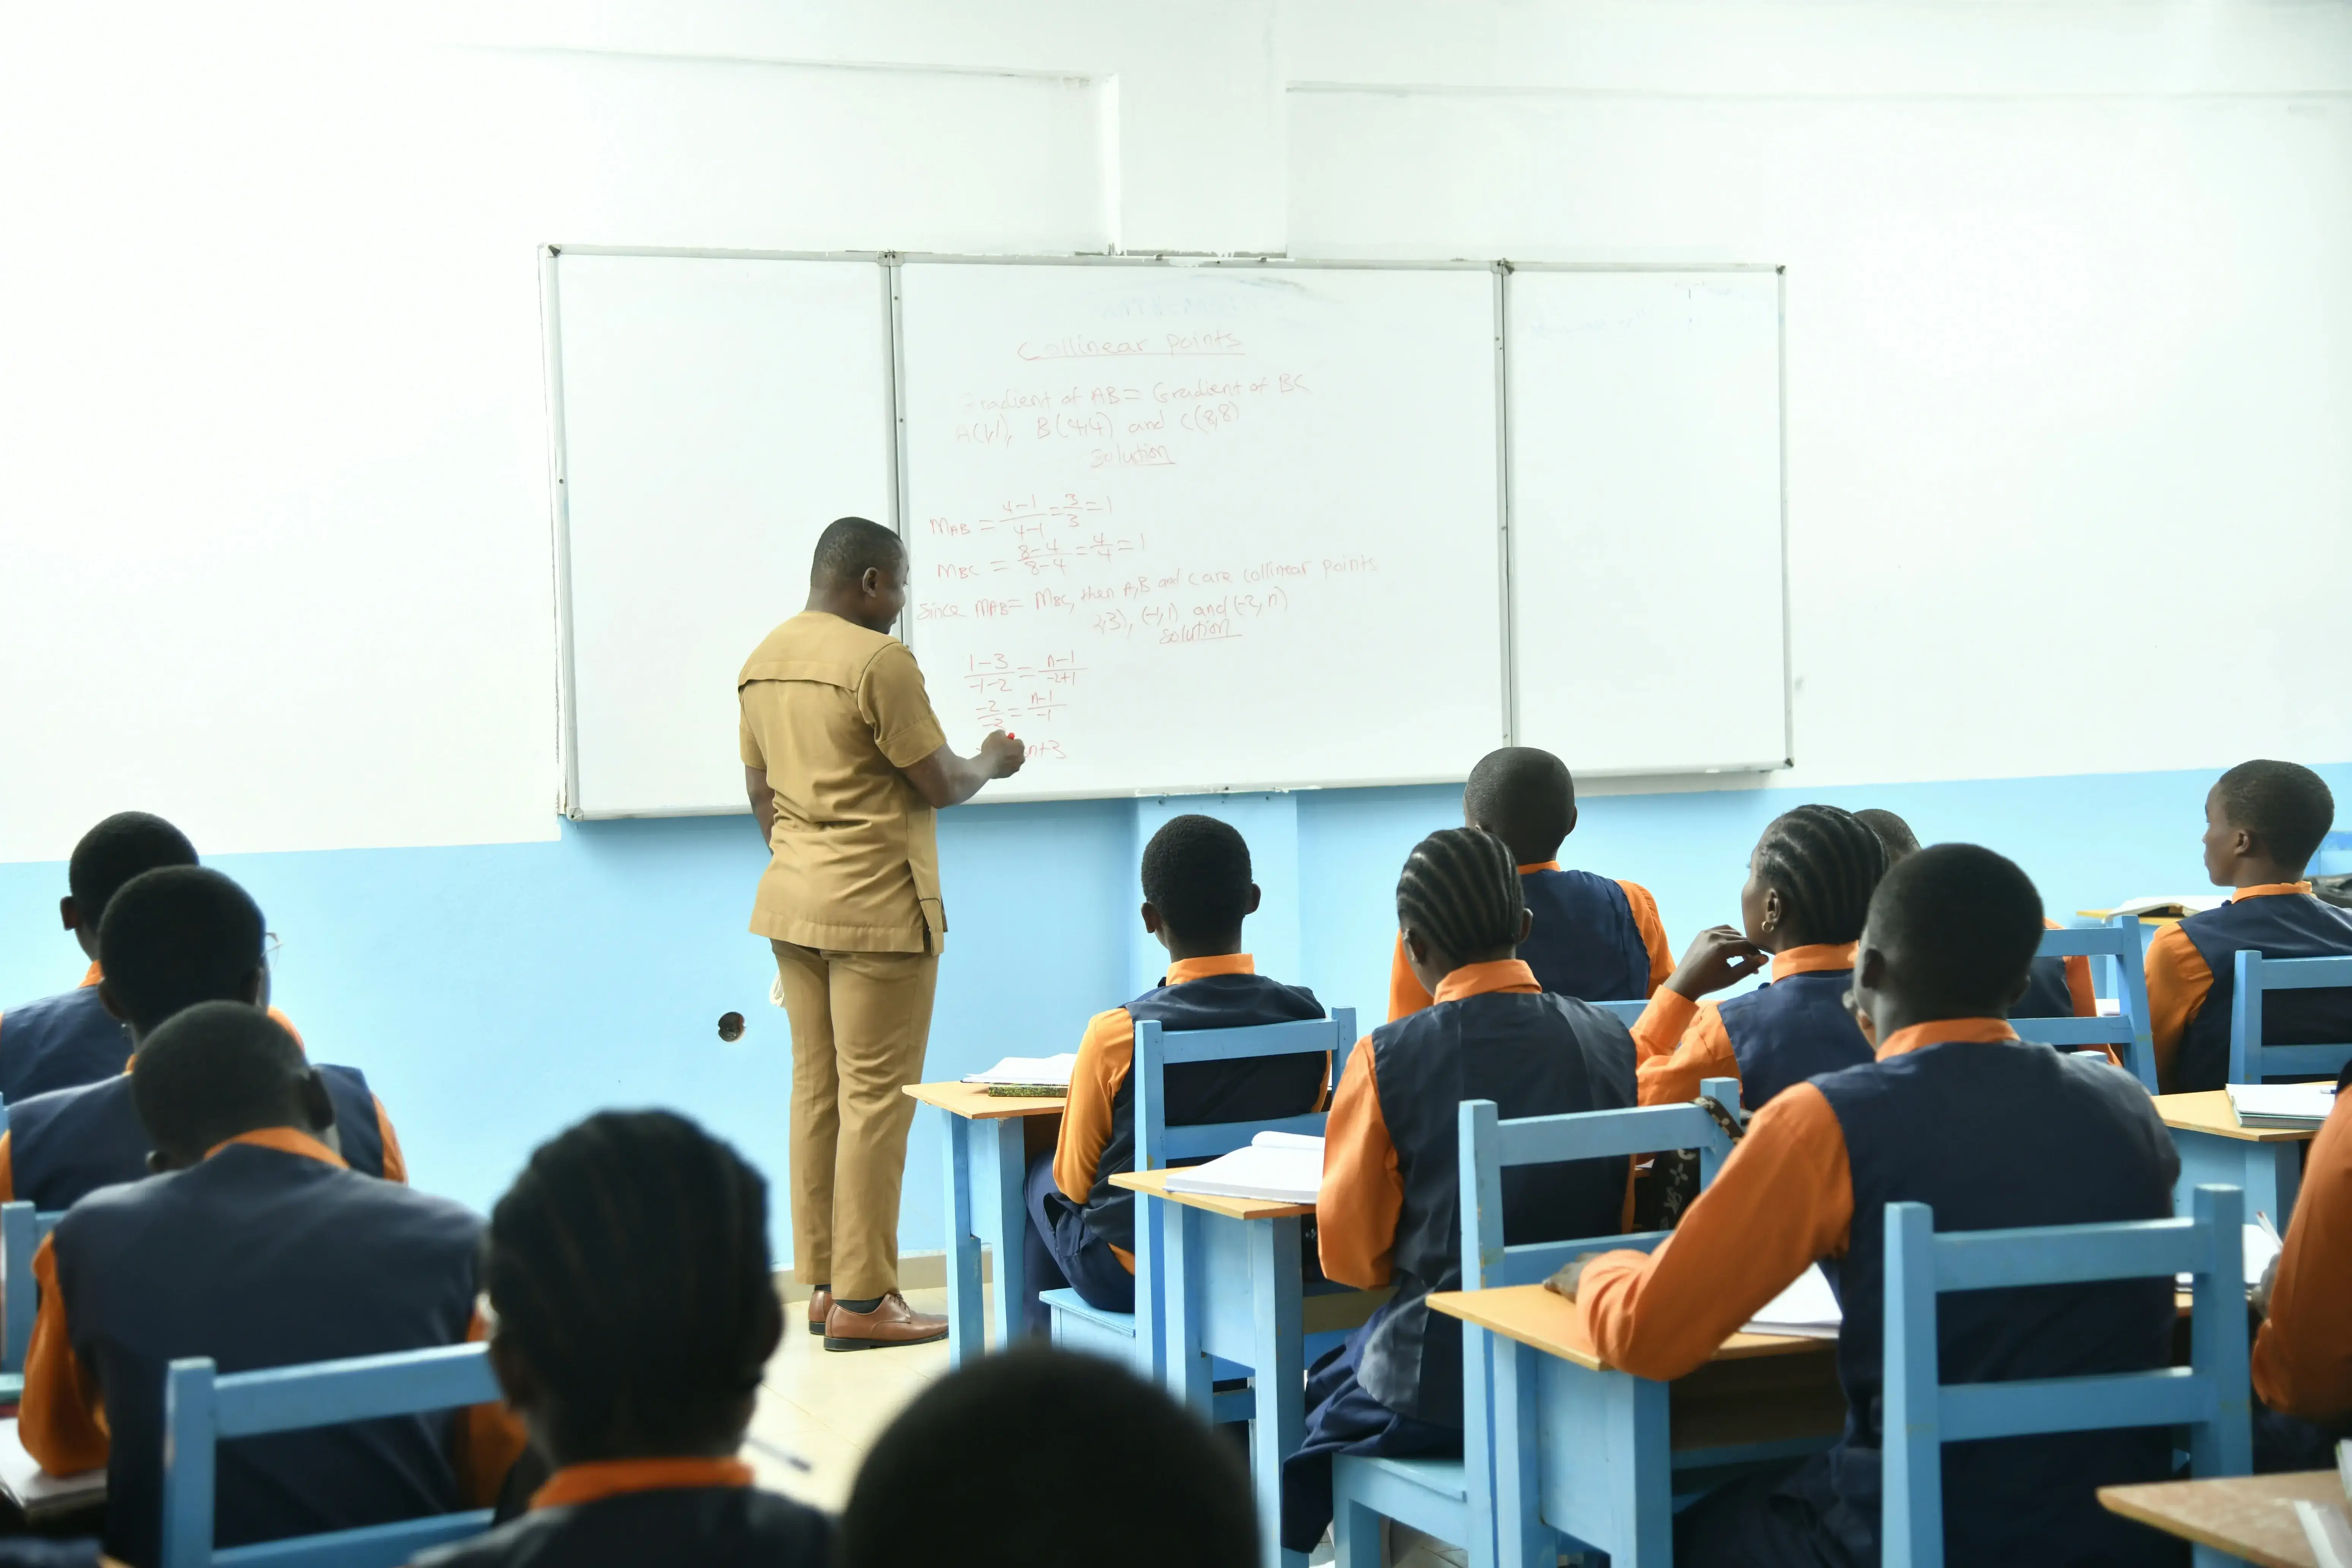 Collinear points
Gradient of AB = Gradient of BC
A(1,1), B(4,4) and C(8,8)
Solution
MAB = 4-1/4-1 = 3/3 = 1
MBC = 8-4/8-4 = 4/4 = 1
Since MAB = MBC, then A,B and C are collinear points
2,3), (-1,1) and (-2, n)
Solution
1-3/-1-2 = n-1/-2+1
-2/-3 = n-1/-1
n+3